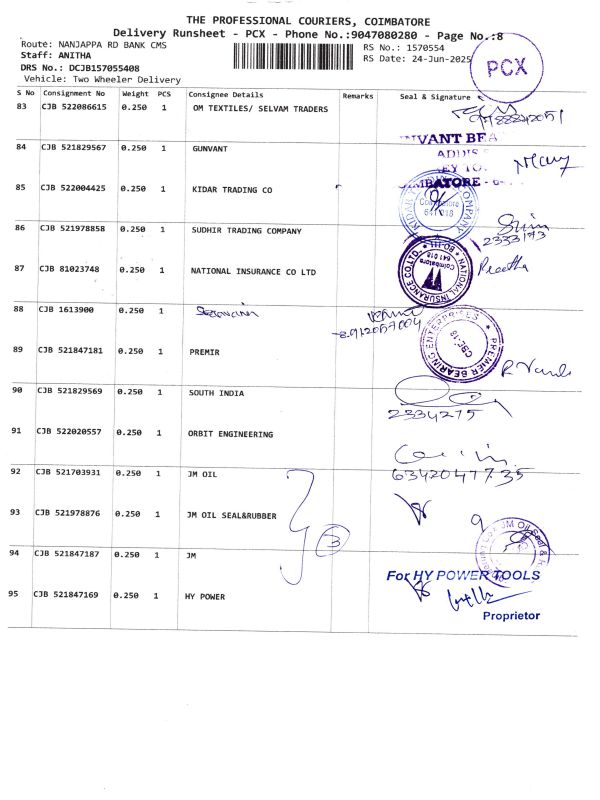 THE PROFESSIONAL COURIERS, COIMBATORE
Delivery Runsheet - PCX - Phone No.:9047080280 - Page No.:8
Route: NANJAPPA RD BANK CMS
RS No.: 1570554
Staff: ANITHA
RS Date: 24-Jun-2025
DRS No.: DCJB157055408
Vehicle: Two Wheeler Delivery
PCX
S No Consignment No Weight PCS Consignee Details Remarks Seal & Signature
83 CJB 522086615 0.250 1 OM TEXTILES/ SELVAM TRADERS
84 CJB 521829567 0.250 1 GUNVANT
85 CJB 522004425 0.250 1 KIDAR TRADING CO
86 CJB 521978858 0.250 1 SUDHIR TRADING COMPANY
2333193
87 CJB 81023748 0.250 1 NATIONAL INSURANCE CO LTD
NATIONAL INSURANCE CO.LTD.
Coimbatore
641 018
Preetha
88 CJB 1613900 0.250 1
89 CJB 521847181 0.250 1 PREMIR
PREMIER BEARING ENTERPRISES
CBE-18
90 CJB 521829569 0.250 1 SOUTH INDIA
2334275
91 CJB 522020557 0.250 1 ORBIT ENGINEERING
92 CJB 521703931 0.250 1 JM OIL
6342047735
93 CJB 521978876 0.250 1 JM OIL SEAL&RUBBER
3
94 CJB 521847187 0.250 1 JM
For HY POWER TOOLS
95 CJB 521847169 0.250 1 HY POWER
Proprietor